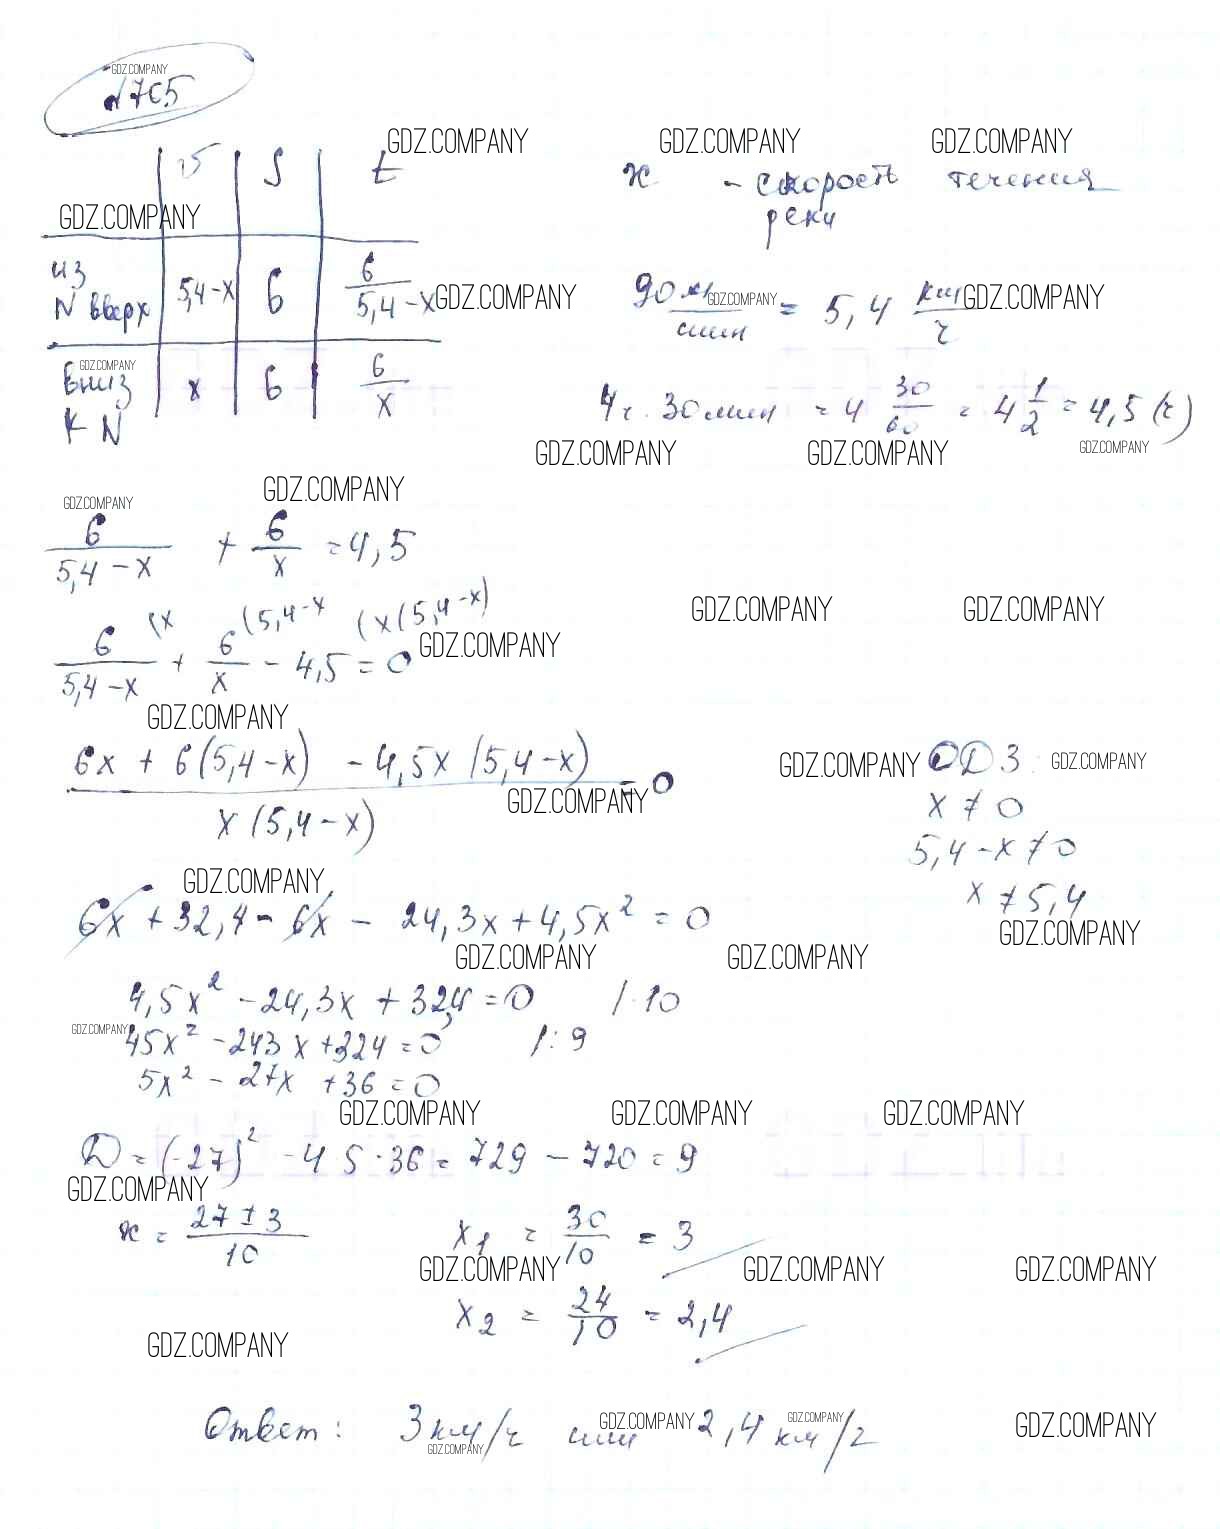 GDZ.COMPANY
№765
GDZ.COMPANY GDZ.COMPANY GDZ.COMPANY
v S t
x - скорость течения
реки
GDZ.COMPANY
из
N вверх 5,4-x 6 6/(5,4-x)
GDZ.COMPANY GDZ.COMPANY GDZ.COMPANY
90 м/мин = 5,4 км/ч
GDZ.COMPANY
вниз
к N x 6 6/x
4ч. 30 мин = 4 30/60 = 4 1/2 = 4,5 (ч)
GDZ.COMPANY GDZ.COMPANY GDZ.COMPANY
GDZ.COMPANY GDZ.COMPANY
6/(5,4-x) + 6/x = 4,5
GDZ.COMPANY GDZ.COMPANY
(x (5,4-x (x(5,4-x)
6/(5,4-x) + 6/x - 4,5 = 0
GDZ.COMPANY
GDZ.COMPANY
(6x + 6(5,4-x) - 4,5x(5,4-x))/(x(5,4-x)) = 0
GDZ.COMPANY
GDZ.COMPANY ОДЗ: GDZ.COMPANY
x ≠ 0
5,4-x ≠ 0
x ≠ 5,4
GDZ.COMPANY
GDZ.COMPANY
6x + 32,4 - 6x - 24,3x + 4,5x² = 0
GDZ.COMPANY GDZ.COMPANY
4,5x² - 24,3x + 32,4 = 0 |·10
GDZ.COMPANY
45x² - 243x + 324 = 0 |:9
5x² - 27x + 36 = 0
GDZ.COMPANY GDZ.COMPANY GDZ.COMPANY
D = (-27)² - 4 5·36 = 729 - 720 = 9
GDZ.COMPANY
x = (27±3)/10 x₁ = 30/10 = 3
GDZ.COMPANY GDZ.COMPANY GDZ.COMPANY
x₂ = 24/10 = 2,4
GDZ.COMPANY
Ответ: 3 км/ч или 2,4 км/ч
GDZ.COMPANY GDZ.COMPANY GDZ.COMPANY
GDZ.COMPANY